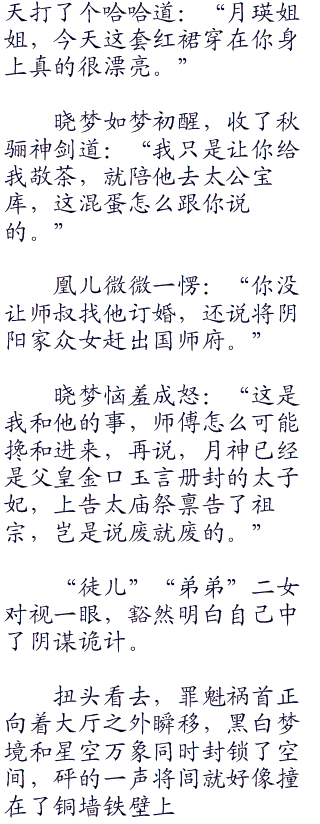 天打了个哈哈道：“月瑛姐
姐，今天这套红裙穿在你身
上真的很漂亮。”
晓梦如梦初醒，收了秋
骊神剑道：“我只是让你给
我敬茶，就陪他去太公宝
库，这混蛋怎么跟你说
的。”
凰儿微微一愣：“你没
让师叔找他订婚，还说将阴
阳家众女赶出国师府。”
晓梦恼羞成怒：“这是
我和他的事，师傅怎么可能
搀和进来，再说，月神已经
是父皇金口玉言册封的太子
妃，上告太庙祭禀告了祖
宗，岂是说废就废的。”
“徒儿”“弟弟”二女
对视一眼，豁然明白自己中
了阴谋诡计。
扭头看去，罪魁祸首正
向着大厅之外瞬移，黑白梦
境和星空万象同时封锁了空
间，砰的一声将闾就好像撞
在了铜墙铁壁上